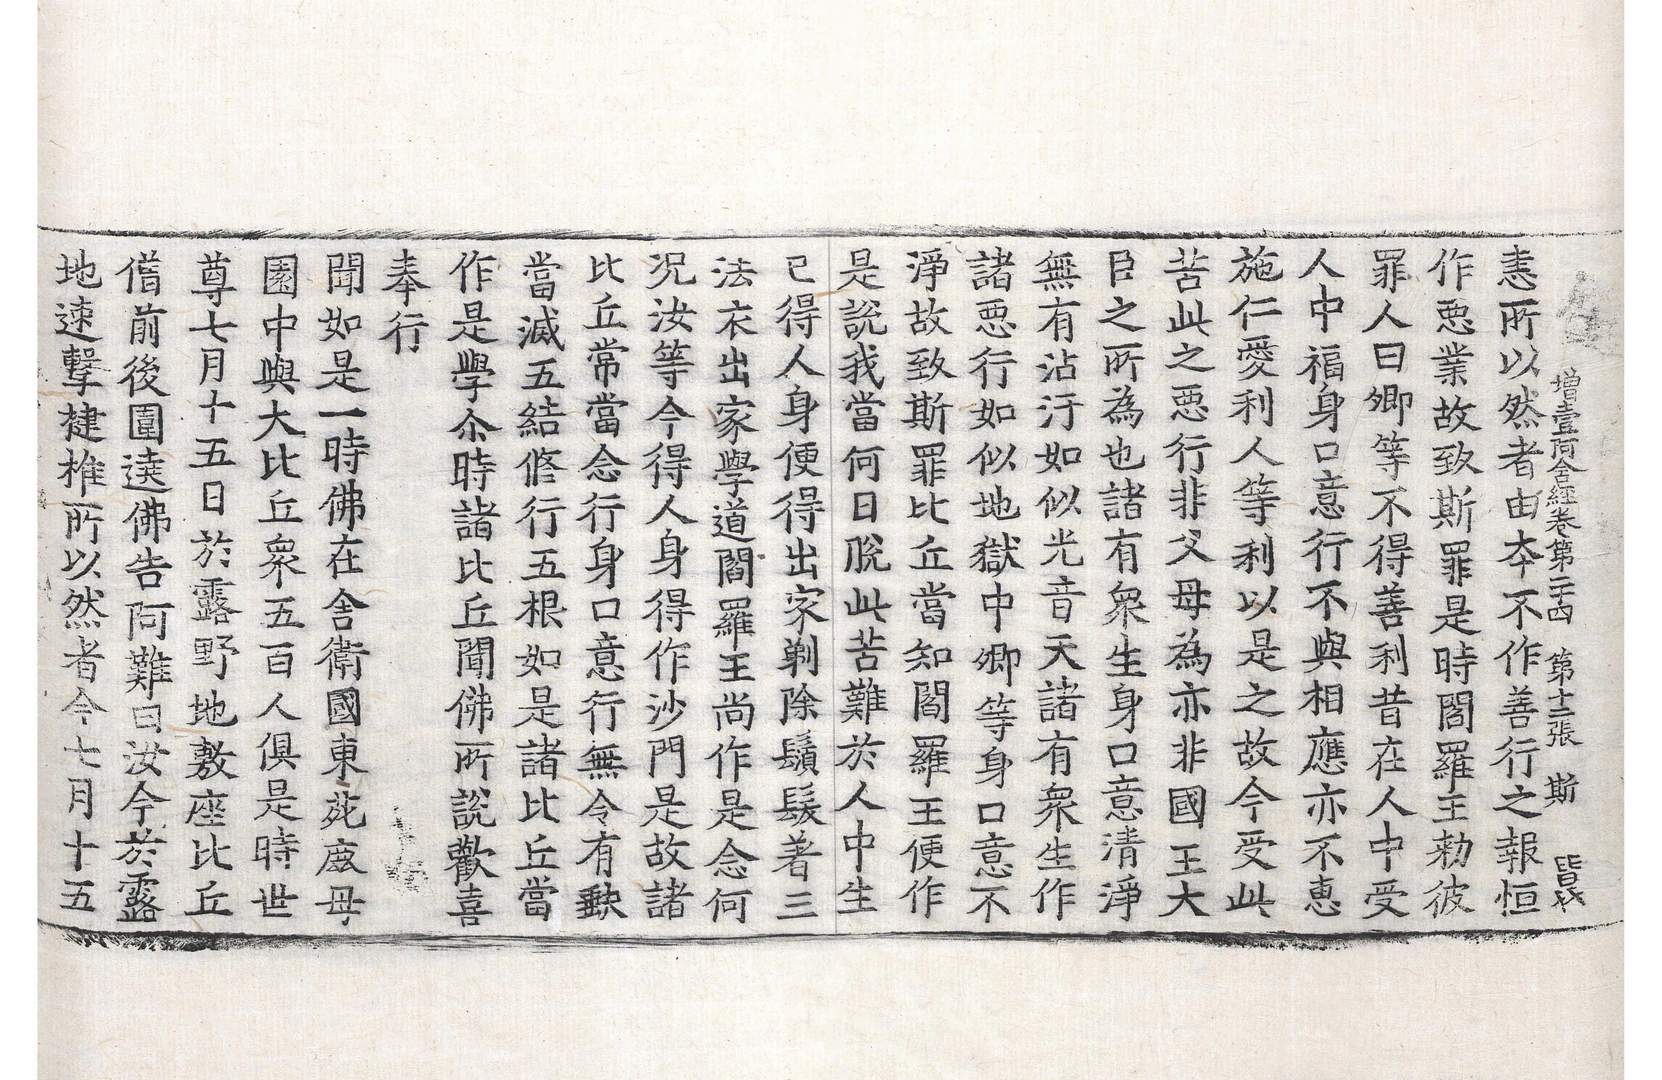 增壹阿含經卷第二十四 第十二張 斯
恚所以然者由本不作善行之報恒
作悪業故致斯罪是時閻羅王勑彼
罪人曰卿等不得善利昔在人中受
人中福身口意行不與相應亦不惠
施仁愛利人等利以是之故今受此
苦此之悪行非父母為亦非國王大
臣之所為也諸有衆生身口意清淨
無有沾汙如似光音天諸有衆生作
諸悪行如似地獄中卿等身口意不
淨故致斯罪比丘當知閻羅王便作
是說我當何日脫此苦難於人中生
已得人身便得出家剃除鬚髮著三
法衣出家學道閻羅王尚作是念何
況汝等今得人身得作沙門是故諸
比丘常當念行身口意行無令有缺
當滅五結修行五根如是諸比丘當
作是學尒時諸比丘聞佛所說歡喜
奉行
聞如是一時佛在舍衛國東苑鹿母
園中與大比丘衆五百人俱是時世
尊七月十五日於露野地敷座比丘
僧前後圍遶佛告阿難曰汝今於露
地速擊揵椎所以然者今七月十五